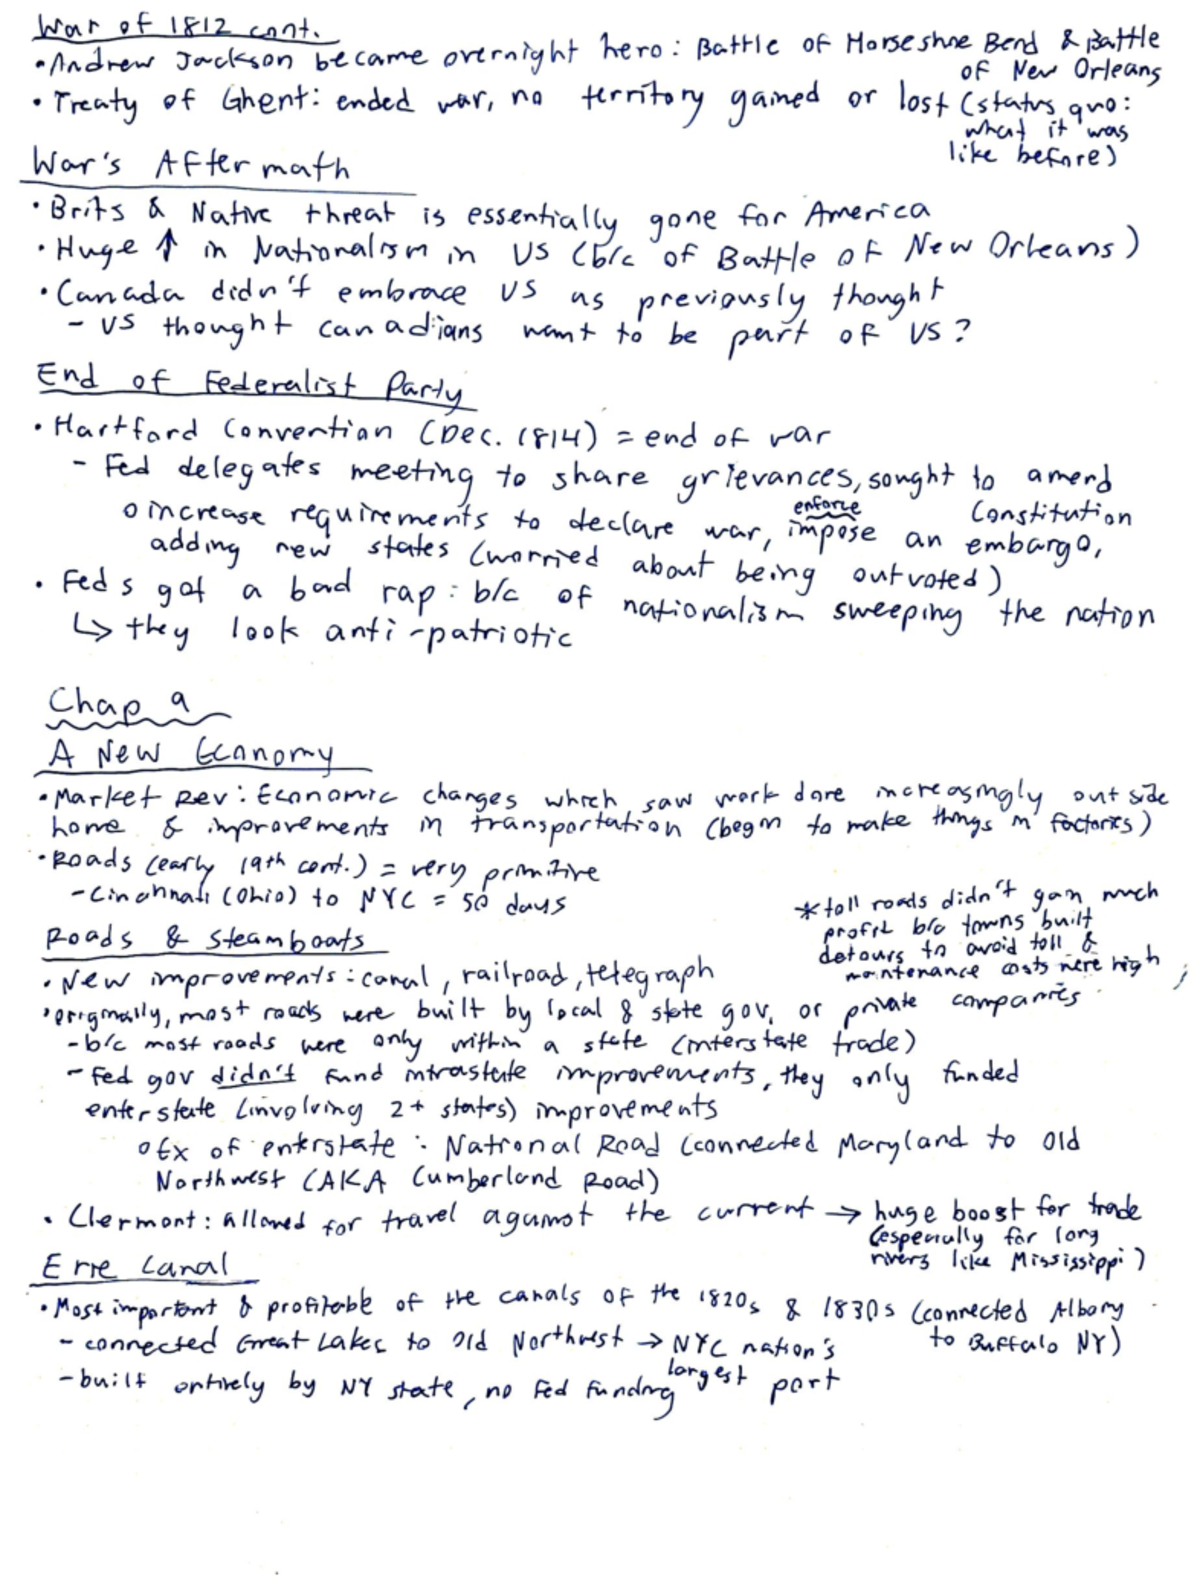 War of 1812 cont.
• Andrew Jackson became overnight hero: Battle of Horseshoe Bend & Battle
of New Orleans
• Treaty of Ghent: ended war, no territory gained or lost (status quo:
what it was
like before)
War's Aftermath
• Brits & Native threat is essentially gone for America
• Huge ↑ in Nationalism in US (b/c of Battle of New Orleans)
• Canada didn't embrace US as previously thought
- US thought canadians want to be part of US?
End of Federalist Party
• Hartford Convention (Dec. 1814) = end of war
- Fed delegates meeting to share grievances, sought to amend
Constitution
o increase requirements to declare war, impose an embargo,
enforce
adding new states (worried about being outvoted)
• Feds got a bad rap: b/c of nationalism sweeping the nation
↳ they look anti-patriotic
Chap 9
A New Economy
• Market Rev: Economic changes which saw work done increasingly outside
home & improvements in transportation (began to make things in factories)
• Roads (early 19th cent.) = very primitive
- Cincinnati (Ohio) to NYC = 50 days
* toll roads didn't gain much
profit b/c towns built
detours to avoid toll &
maintenance costs were high
Roads & Steamboats
• New improvements: canal, railroad, telegraph
• originally, most roads were built by local & state gov. or private companies
- b/c most roads were only within a state (interstate trade)
- Fed gov didn't fund intrastate improvements, they only funded
enterstate (involving 2+ states) improvements
o Ex of enterstate: National Road (connected Maryland to Old
Northwest (AKA Cumberland Road)
• Clermont: allowed for travel against the current → huge boost for trade
(especially for long
rivers like Mississippi)
Erie Canal
• Most important & profitable of the canals of the 1820s & 1830s (connected Albany
to Buffalo NY)
- connected Great Lakes to Old Northwest → NYC nation's
largest port
- built entirely by NY state, no Fed funding